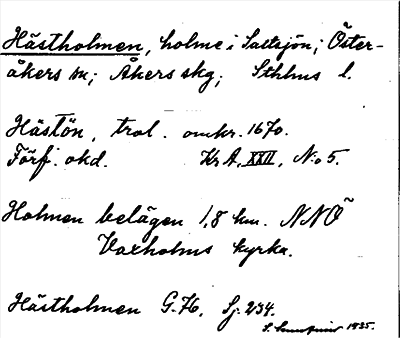 Hästholmen, holme i Saltsjön; Öster-
åkers sn; Åkers skg; Sthlms l.
Hästön, trol. omkr. 1670.
Förf. okd. KrA, XXII, No 5.
Holmen belägen 1,8 km. NNÖ
Vaxholms kyrka.
Hästholmen G.K., Sj. 234.
1935.